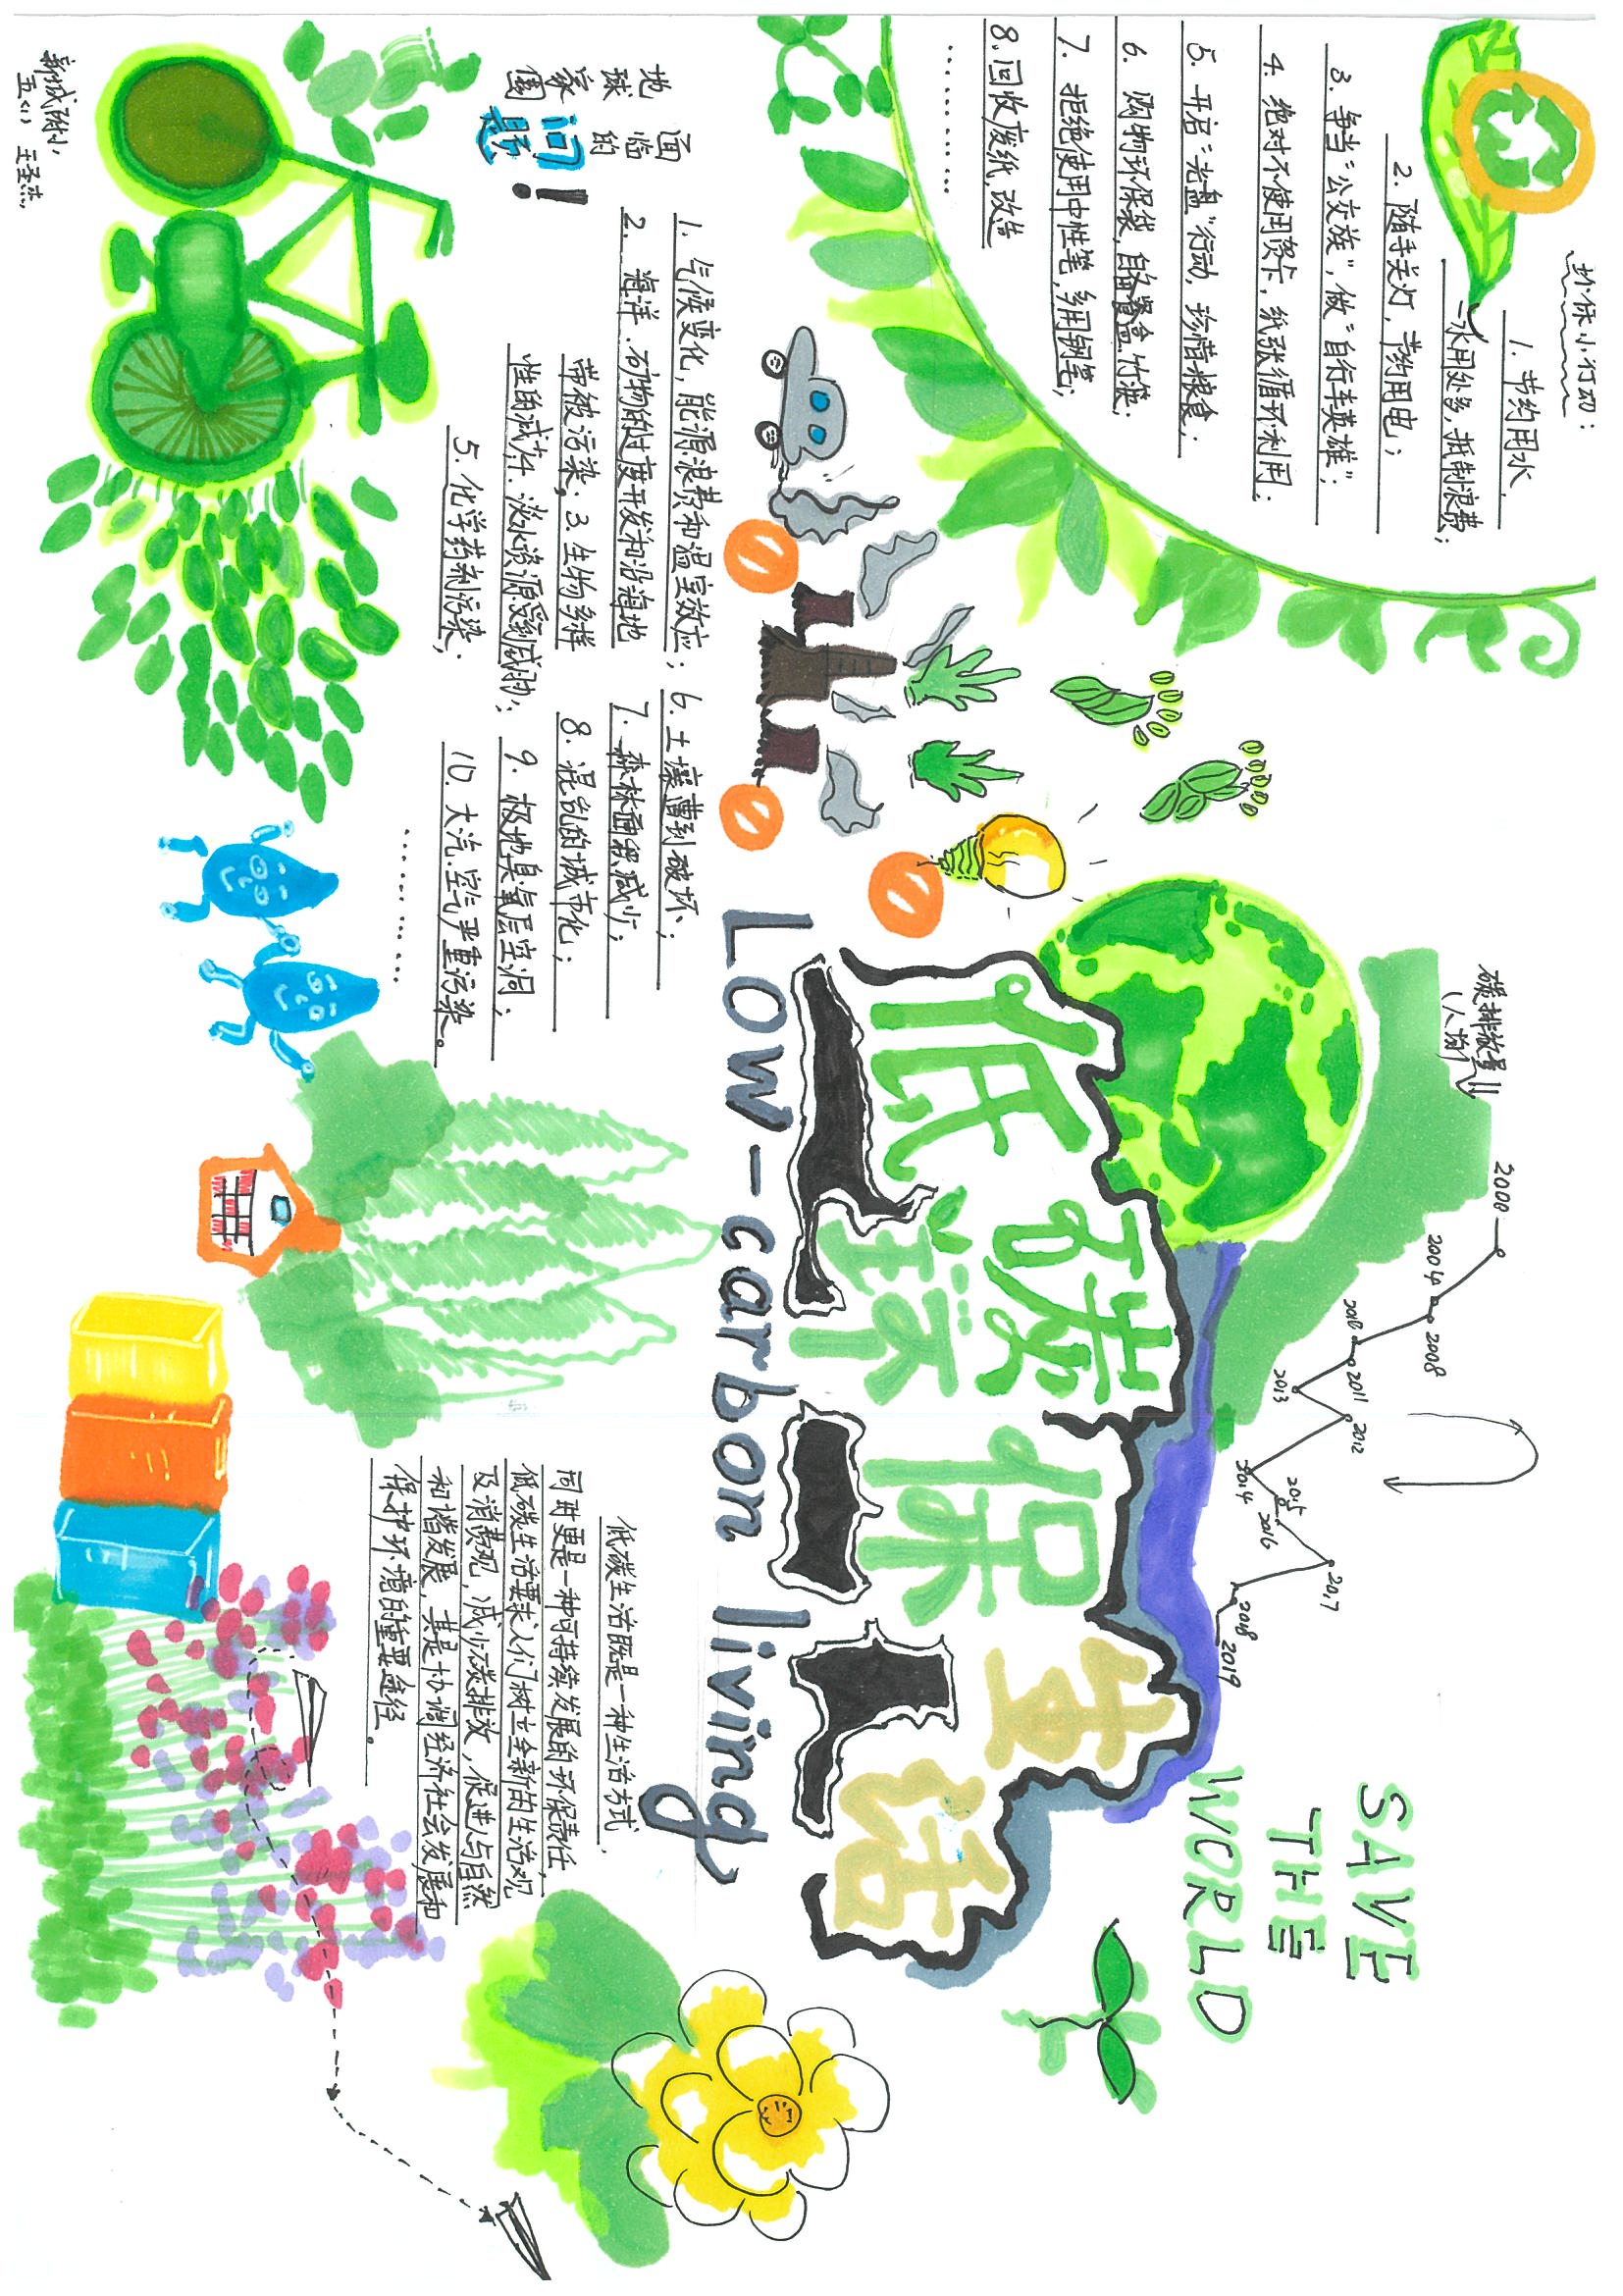 环保小行动：
1. 节约用水，
一水用处多，抵制浪费；
2. 随手关灯，节约用电；
3. 争当“公交族”，做“自行车英雄”；
4. 绝对不使用贺卡，纸张循环利用；
5. 开启“光盘”行动，珍惜粮食；
6. 购物环保袋，自备餐盒、竹筷；
7. 拒绝使用中性笔，多用钢笔；
8. 回收废纸，改造
…………
碳排放量
（人均）
2000
2004
2008
2010
2011
2013
2012
2014
2015
2016
2017
2018
2019
SAVE
THE
WORLD
低碳
环保
生活
Low-carbon living
地球家园
面临的
问题！
1. 气候变化，能源浪费和温室效应；
2. 海洋、矿物的过度开发和沿海地
带被污染；3. 生物多样
性的减少4. 淡水资源受到威胁；
5. 化学药剂污染；
6. 土壤遭到破坏；
7. 森林面积减少；
8. 混乱的城市化；
9. 极地臭氧层空洞；
10. 大汽、空气严重污染。
…………
低碳生活既是一种生活方式，
同时更是一种可持续发展的环保责任，
低碳生活要求人们树立全新的生活观
及消费观，减少碳排放，促进与自然
和谐发展，其是协调经济社会发展和
保护环境的重要途径。
新城附小
五（1） 王圣杰